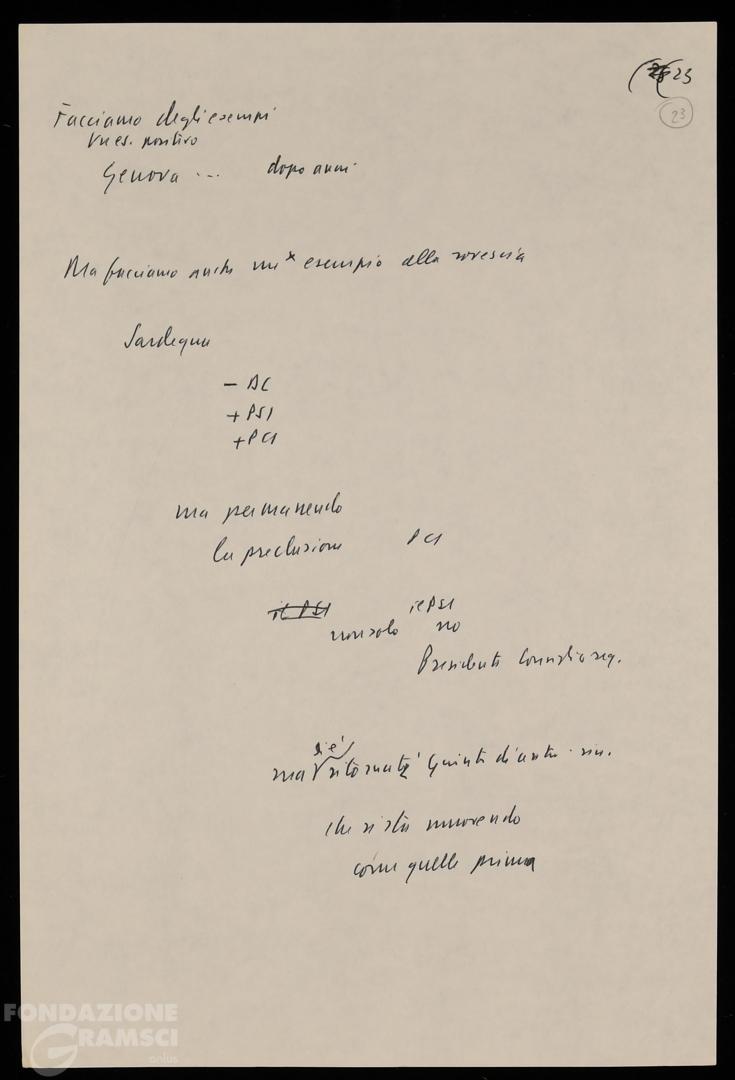 23
23
Facciamo degli esempi
Un es. positivo
Genova ... dopo anni
Ma facciamo anche un x esempio alla rovescia
Sardegna
- DC
+ PSI
+ PCI
ma permanendo
la preclusione PCI
il PSI il PSI
non solo no
Presidente Consiglio reg.
si è
ma ritornati Giunte di centro-sin.
che si sta muovendo
come quelle prima
FONDAZIONE
GRAMSCI
onlus